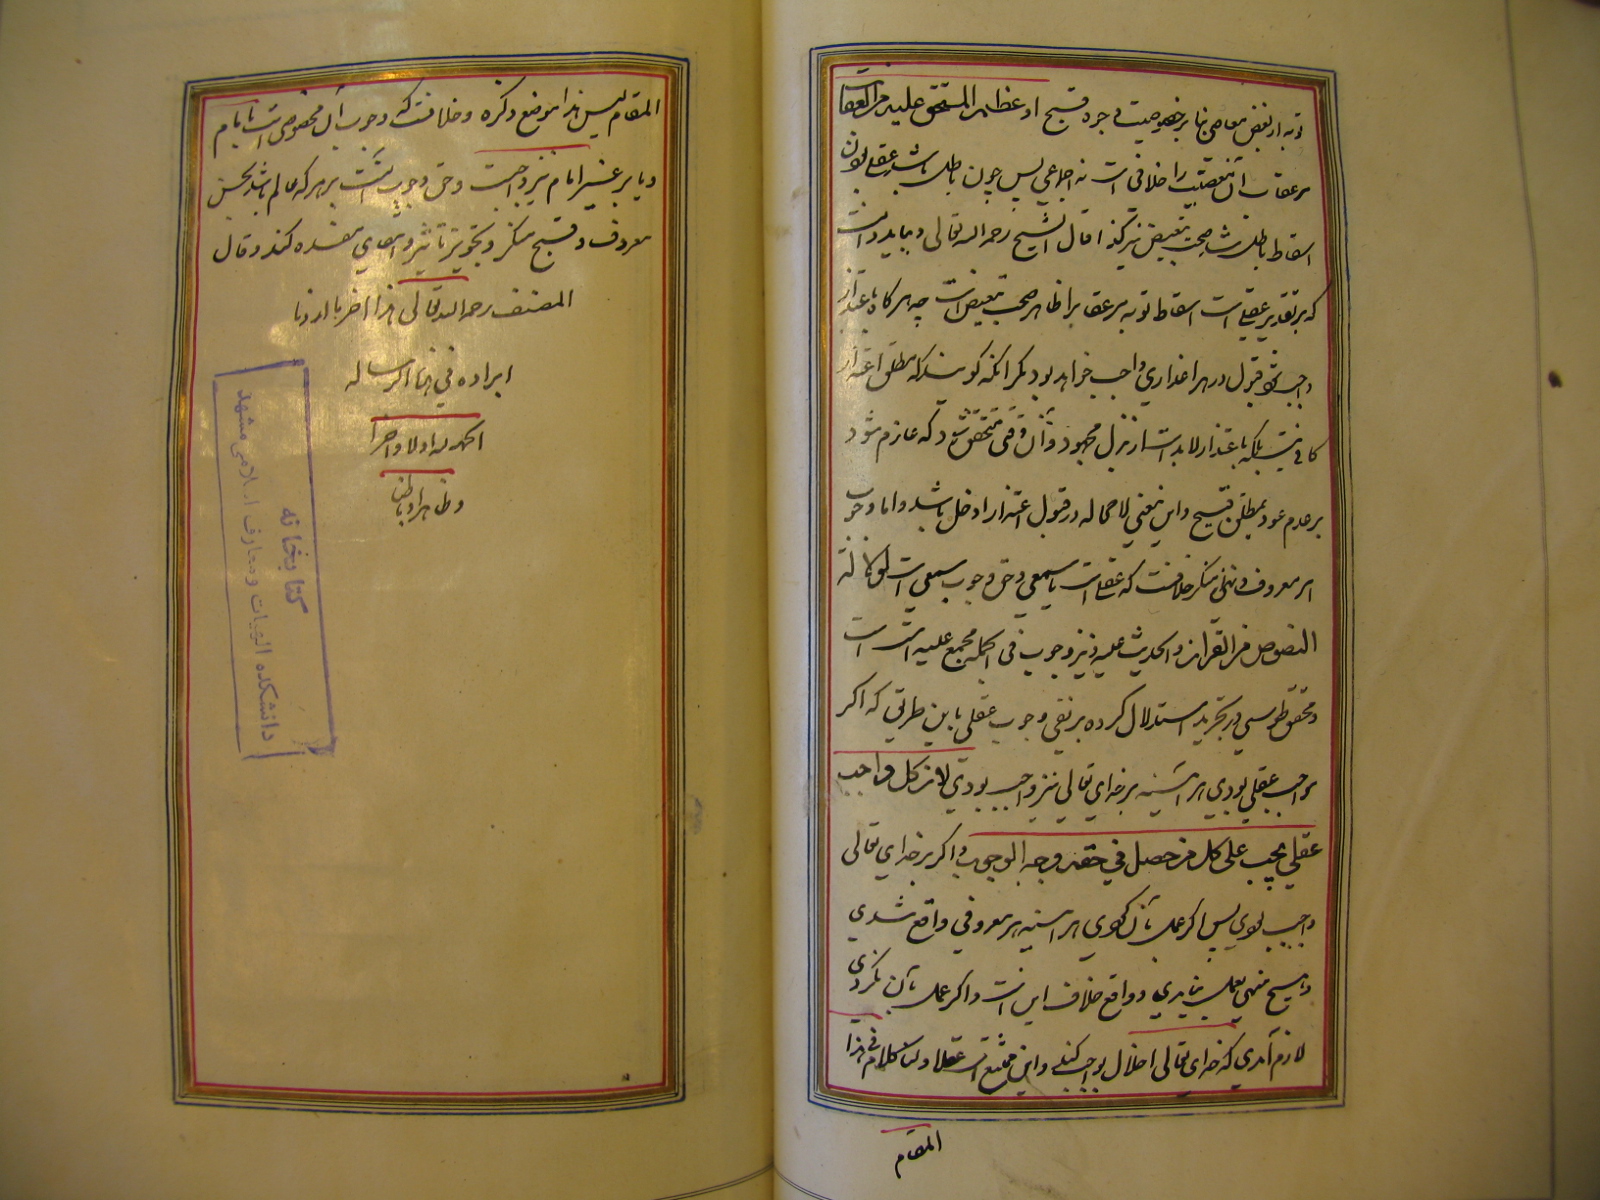 توبه از بعض معاصی بنا بر خصوصیت وجوه قبیح او عظم المستحق علیه من العقاب
بر عقاب آن معصیت را خلافی است نه اجماعی پس چون باطل باشد عقلی بودن
اسقاط باطل باشد صحت تبعیض نیز کذا قال الشیخ رحمه الله تعالی و بباید دانست
که بر تقدیر عقلی است اسقاط توبه مر عقاب را ظاهر صحت تبعیض است چه هر گاه باعتذار
واجب شود قبول در هر اعذاری واجب خواهد بود مگر آنکه گویند که مطلق اعتذار
کافی نیست بلکه باعتذار لابد است از بذل مجهود و آن وقتی متحقق شود که عازم شود
بر عدم عود بمطلق قبیح و این معنی لا محاله در قبول اعتذار ادخل باشد و اما وجوب
امر معروف و نهی منکر خلافست که عقلی است یا سمعی و حق وجوب سمعی است لوکالة
النصوص من القرآن والحدیث علیه و نیز وجوب فی الجمله مجمع علیه است
و محقق طوسی در تجرید استدلال کرده بر نفی وجوب عقلی باین طریق که اگر
واجب عقلی بودی هر آینه بر خدای تعالی نیز واجب بودی لان کل واجب
عقلی یجب علی کل من حصل فی حقه وجه الوجوب و اگر بر خدای تعالی
واجب بودی پس اگر عمل بآن کردی هر آینه هر معروفی واقع شدی
و هیچ منهی بعمل نیامدی و واقع خلاف این است و اگر عمل بآن نکردی
لازم آمدی که خدای تعالی اخلال بواجب کند و این ممتنع است عقلا ولنا کلام فی هذا
المقام
المقام لیس هذا موضع ذکره و خلافست که وجوب آن مخصوص است بامام
و یا بر غیر امام نیز واجبست و حق وجوب آنست بر هر که عالم باشد بحسن
معروف و قبح منکر و تجویز تاثیر و انتفای مفسده کند و قال
المصنف رحمه الله تعالی هذا آخر ما اردنا
ایراده فی هذا الرساله
الحمد لله اولا و آخرا
و ظاهرا و باطنا
کتابخانه
دانشکده الهیات و معارف اسلامی مشهد